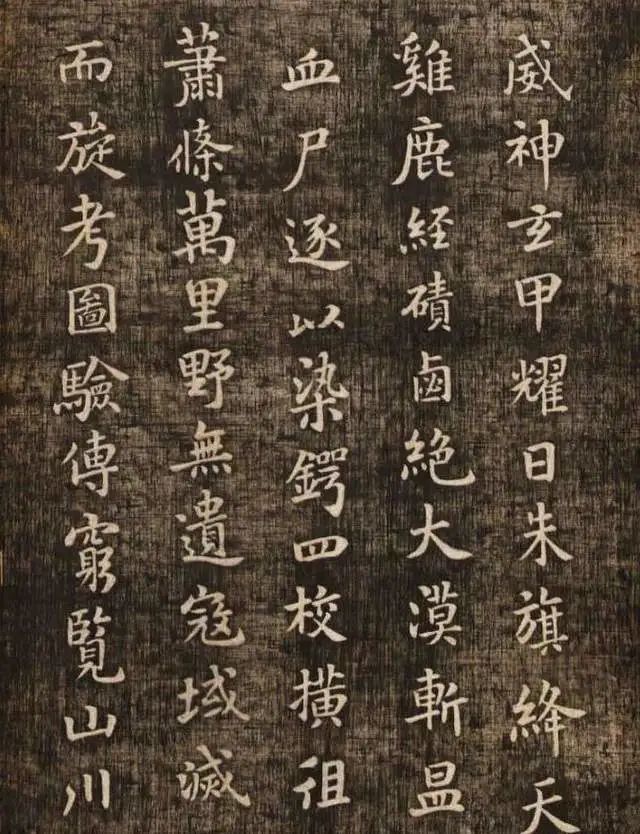 威神玄甲耀日朱旗絳天
雞鹿経磧鹵絶大漠斬昷
血尸逐以染鍔四校撗徂
蕭條萬里野無遺寇域滅
而旋考圖驗傳窮覽山川